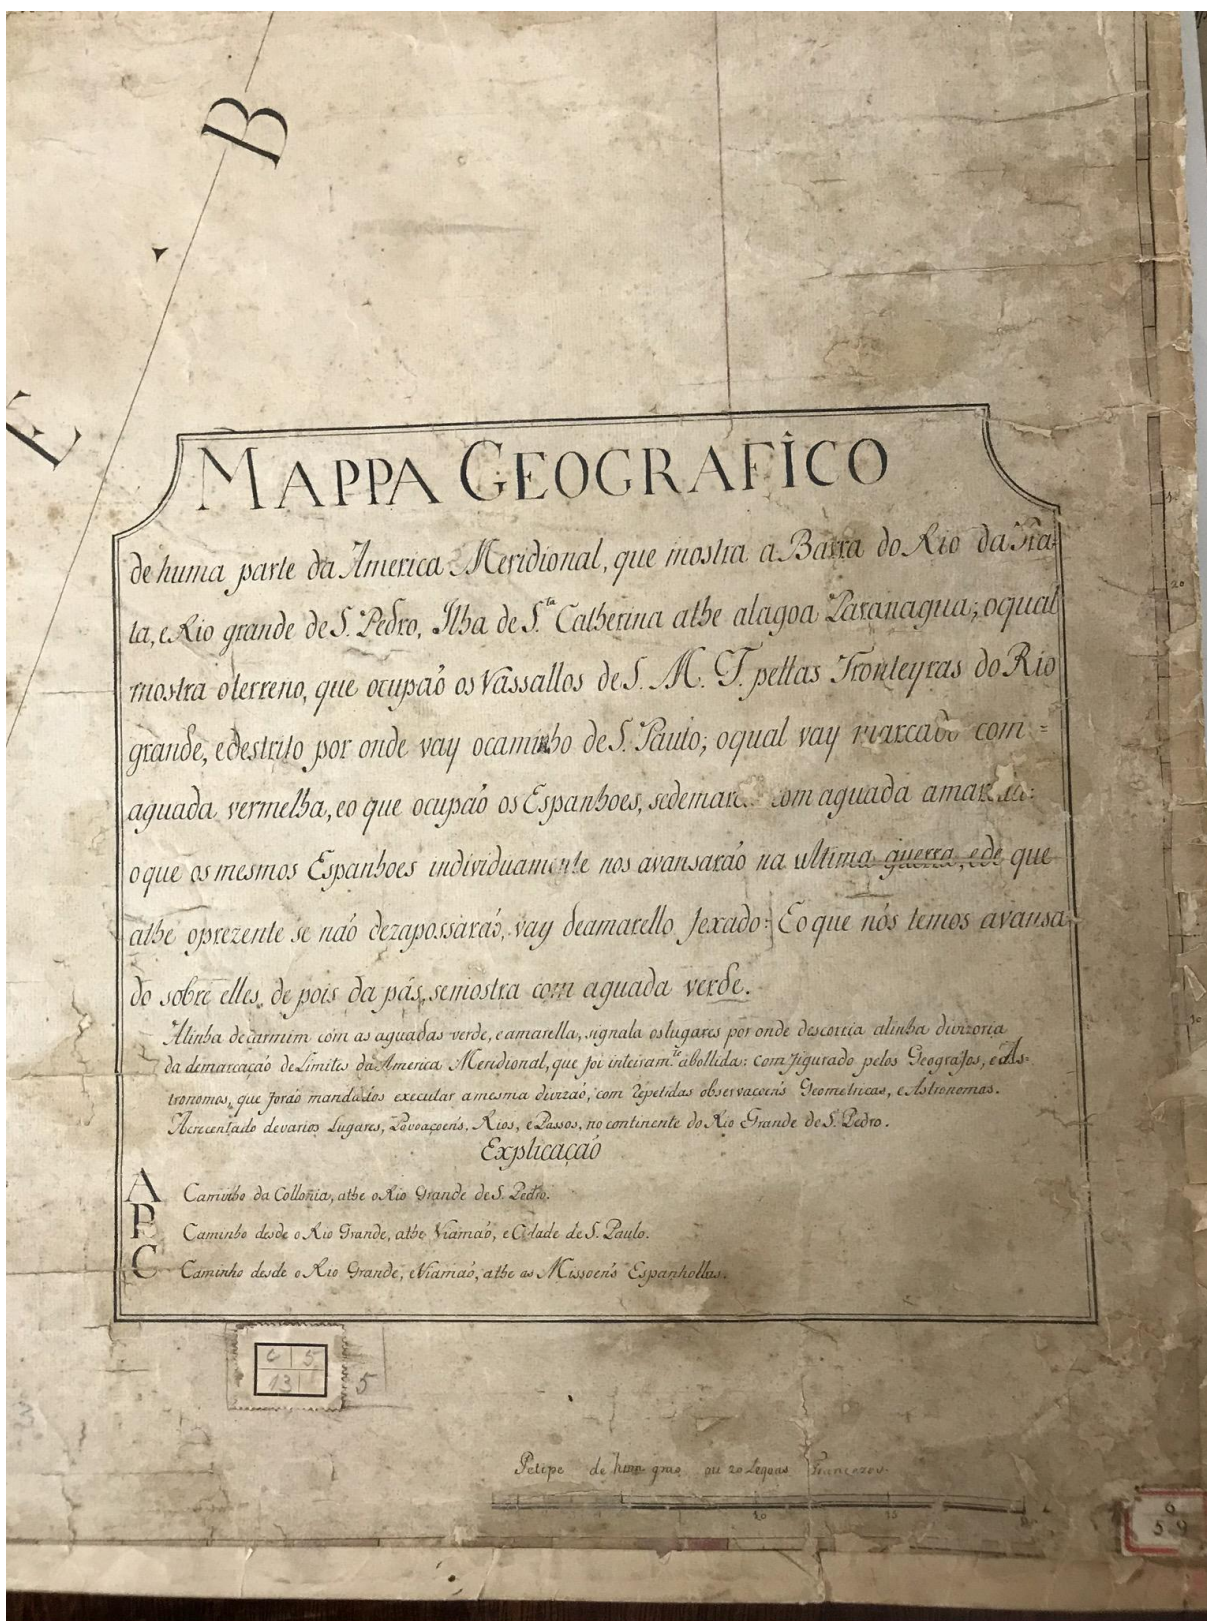 B
E
MAPPA GEOGRAFICO
de huma parte da America Meridional, que mostra a Barra do Rio da Pra-
ta, e Rio grande de S. Pedro, Ilha de S.ta Catherina athe alagoa Paranagua; oqual
mostra oterreno, que ocupaõ os Vassallos de S. M. F. pellas Fronteyras do Rio
grande, edestrito por onde vay ocaminho de S. Paulo; oqual vay marcado com =
aguada vermelha, eo que ocupaõ os Espanhoes, sedemarc om aguada amar
oque os mesmos Espanhoes individuamente nos avansaraõ na ultima guerra, ede que
athe oprezente se naõ dezapossaraõ, vay deamarello fexado: Eo que nós temos avansa-
do sobre elles, de pois da pás, semostra com aguada verde.
Alinha decarmim com as aguadas verde, eamarella, signala oslugares por onde descorria alinha divizoria
da demarcaçaõ deLimites daAmerica Meridional, que foi inteiram.te abollida: comfigurado pelos Geografos, eAs-
tronomos, que foraõ mandados executar amesma divizaõ, com repetidas observaçoens Geometricas, eAstronomas.
Acrecentado devarios Lugares, Povoaçoens, Rios, ePassos, no continente do Rio Grande de S. Pedro.
Explicaçaõ
A Caminho da Collonia, athe oRio Grande de S. Pedro.
B Caminho desde o Rio Grande, athe Viamaõ, eCidade de S. Paulo.
C Caminho desde o Rio Grande, eViamaõ, athe as Missoens Espanhollas.
5
13
5
Petipe de hum grao ou 20 Legoas Francezas
20
6
59